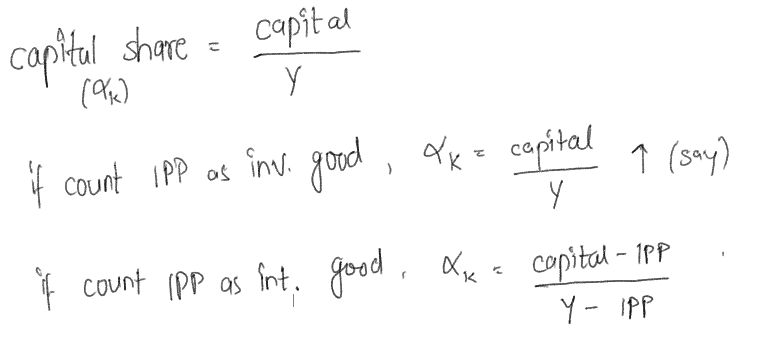 capital share = capital / Y
(αK)
if count IPP as inv. good, αK = capital / Y ↑ (say)
if count IPP as int. good, αK = capital - IPP / Y - IPP